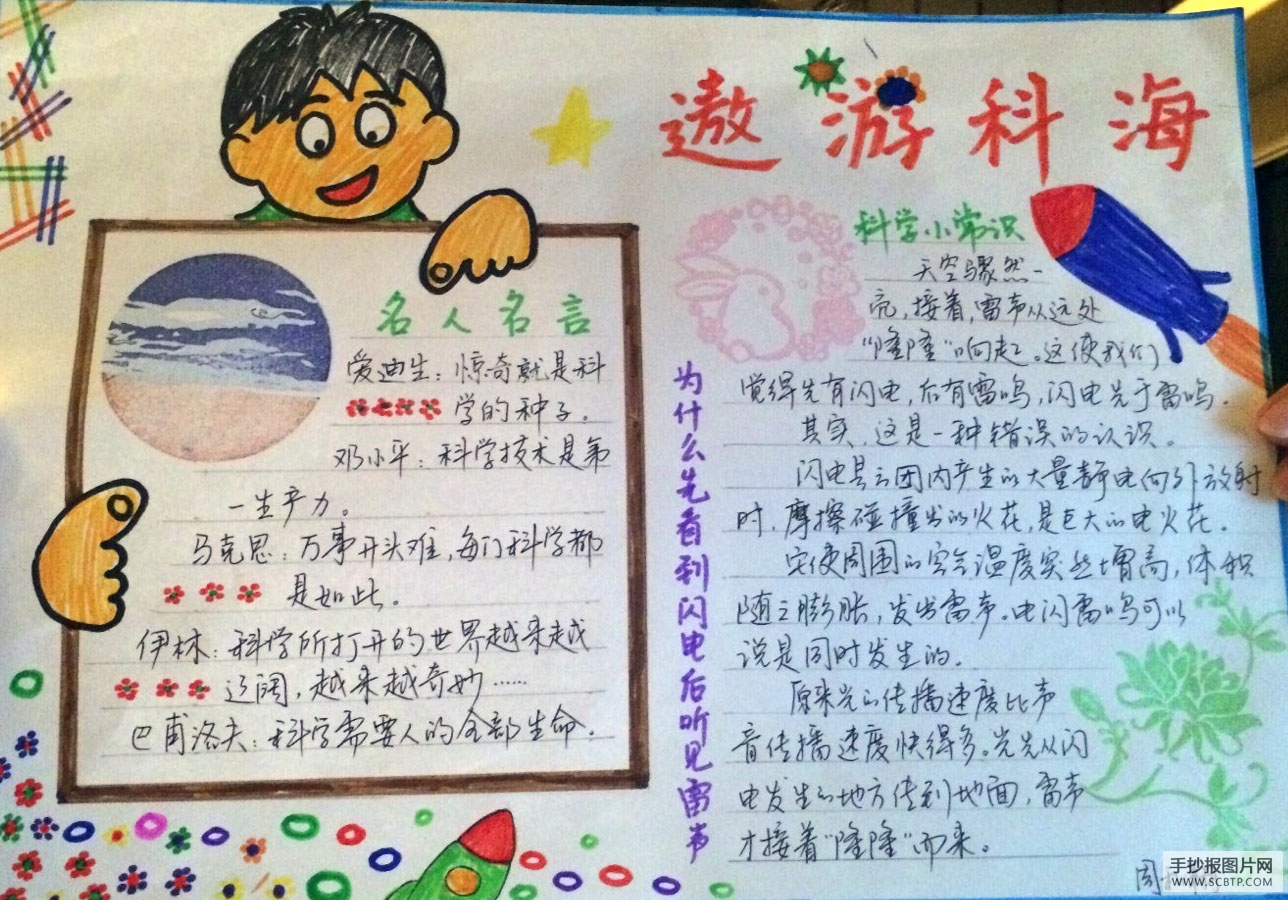 遨游科海
名人名言
爱迪生：惊奇就是科
学的种子。
邓小平：科学技术是第
一生产力。
马克思：万事开头难，每门科学都
是如此。
伊林：科学所打开的世界越来越
辽阔，越来越奇妙……
巴甫洛夫：科学需要人的全部生命。
为什么先看到闪电后听见雷声
科学小常识
天空骤然一
亮，接着，雷声从远处
“隆隆”响起。这使我们
觉得先有闪电，后有雷鸣，闪电先于雷鸣。
其实，这是一种错误的认识。
闪电是云团内产生的大量静电向外放射
时，摩擦碰撞出的火花，是巨大的电火花。
它使周围的空气温度突然增高，体积
随之膨胀，发出雷声。电闪雷鸣可以
说是同时发生的。
原来光的传播速度比声
音传播速度快得多。光先从闪
电发生的地方传到地面，雷声
才接着“隆隆”而来。
周
手抄报图片网
WWW.SCBTP.COM